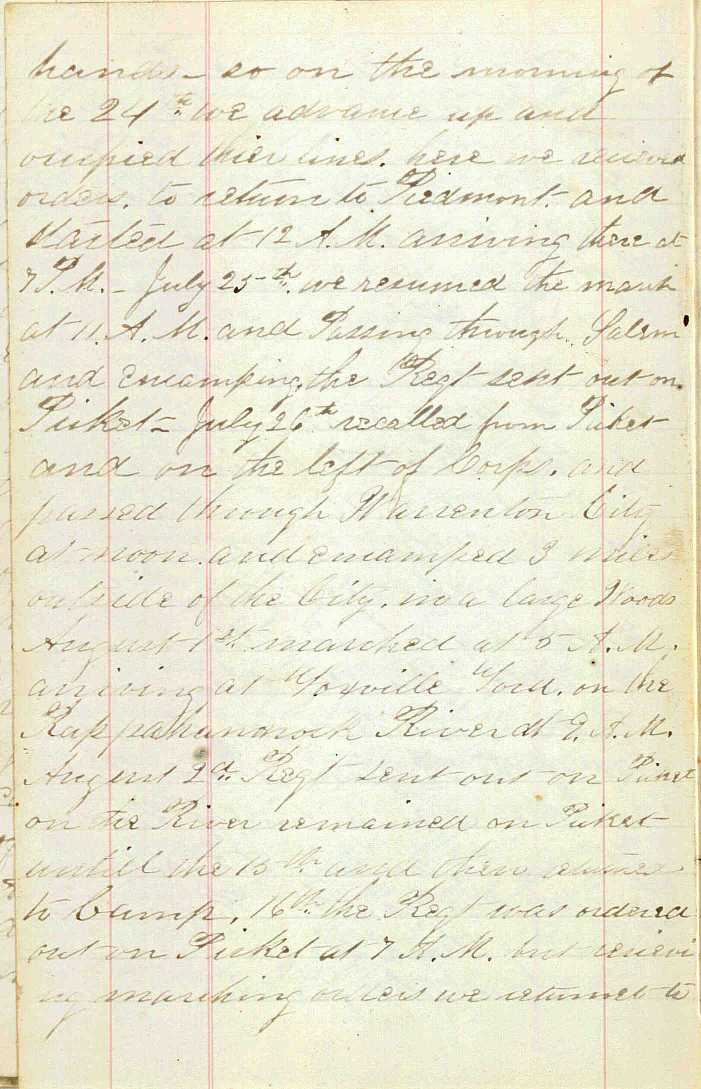 hands - so on the morning of
the 24th we advance up and
occupied thier lines. here we recieved
orders. to return to Piedmont. and
started at 12 A.M. arriving there at
7 P.M. - July 25th. we resumed the march
at 11. A.M. and Passing through Salem
and encamping, the Regt sent out on
Picket - July 26th recalled from Picket
and on the left of Corps. and
passed through Warrenton City
at noon. and encamped 3 miles
outside of the City. in a large Woods
August 1st. marched at 5 A.M.
arriving at Foxville Ford. on the
Rappahannock River at 9. A.M.
August 2d. Regt sent out on Picket
on the River remained on Picket
untill the 15th and then
to Camp, 16th. the Regt was ordered
out on Picket at 7 A.M. but recievi
ng marching orders we returned to